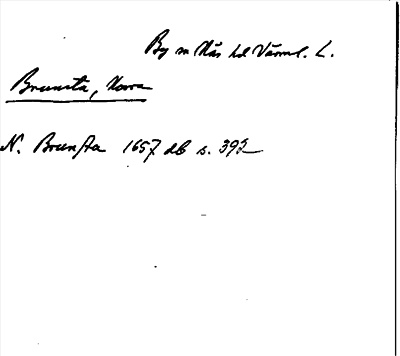 By m Näs hd Värml. L.
Brunsta, Norra
N. Brunsta 1657 db s. 392